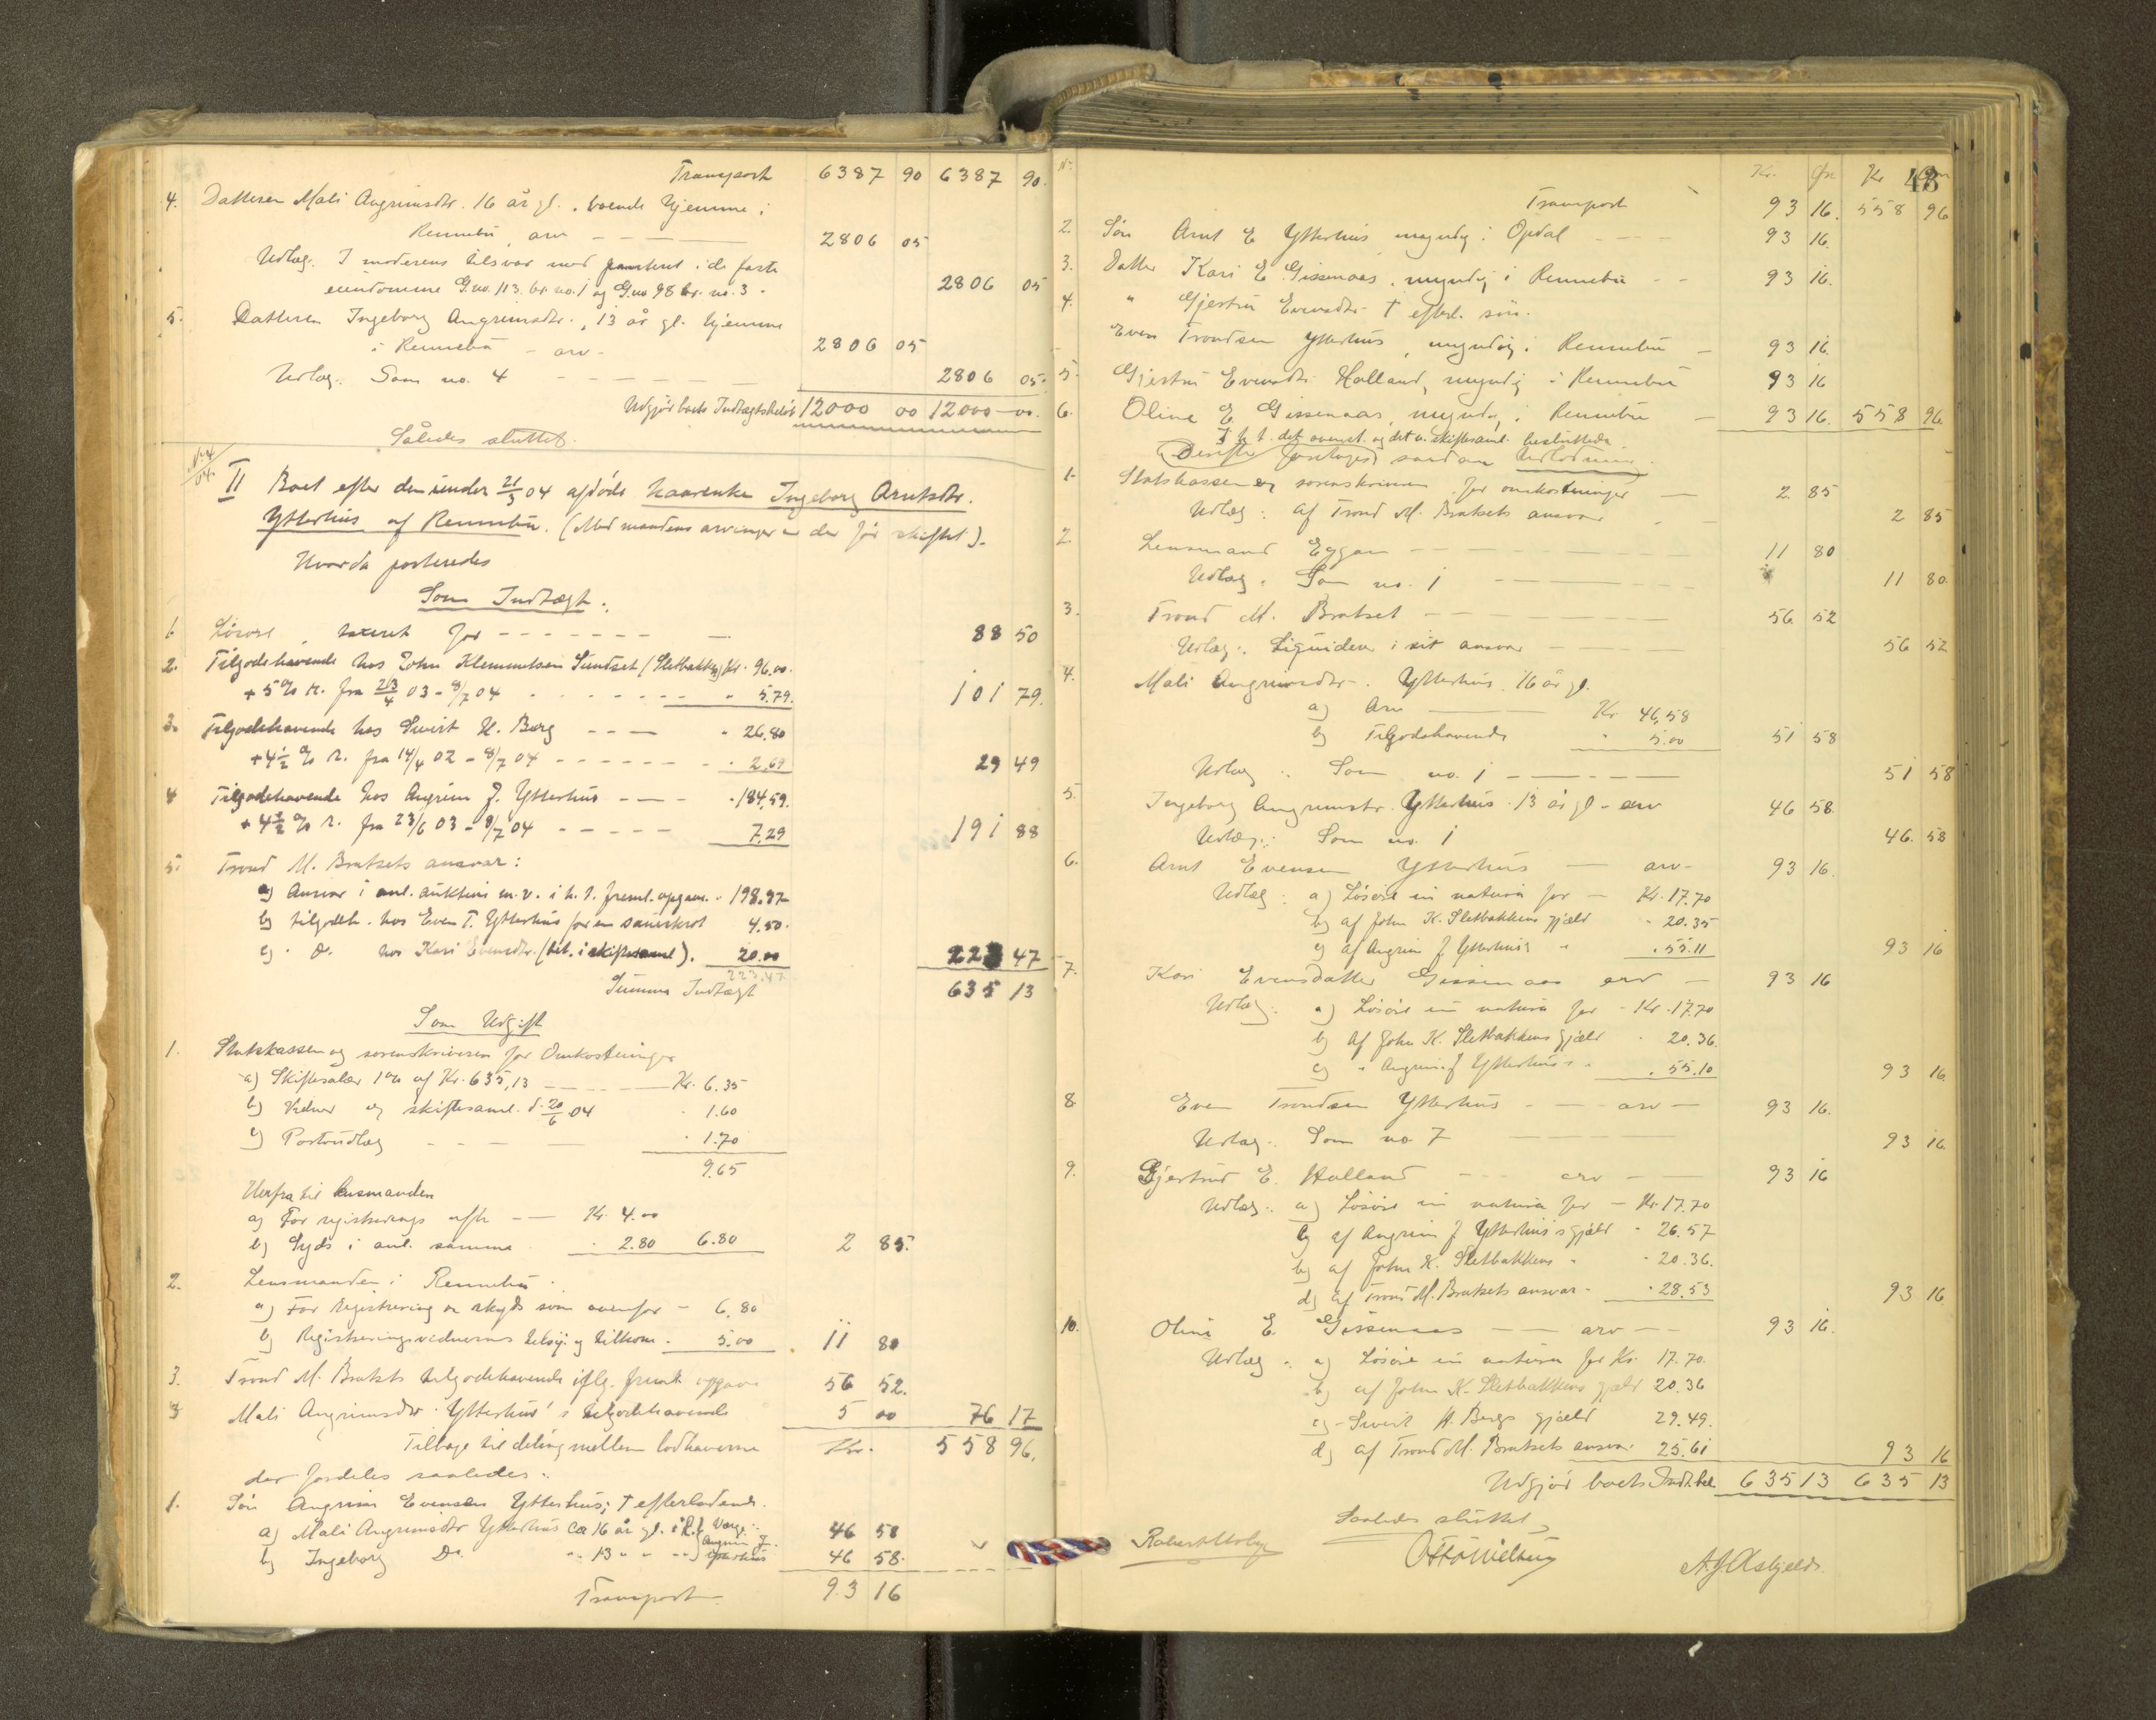 Transport 6387 90 6387 90.
4. Datteren Mali Angrimsdtr. 16 år gl., boende hjemme i
Rennebu, arv — — 2806 05
Udlæg: I moderens tilsvar med panteret i de faste
eiendomme G.no. 113. br. no. 1 og G.no 98 br. no. 3 - 2806 05
5. Datteren Ingeborg Angrimsdtr., 13 år gl. hjemme
i Rennebu - arv - 2806 05
Udlæg: Som no. 4 — — — 2806 05.
Udgjør boets Indtægtsbeløb 12000 00 12000 00.
Således sluttet.
No 4/04
II Boet efter den under 21/3 04 afdøde kaarenke Ingeborg Arntsdtr.
Ytterhus af Rennebu. (Med mandens arvinger er der før skiftet).
Hvorda posteredes
Som Indtægt.
1. Løsøre, taxeret for - - - - - - - — 88 50
2. Tilgodehavende hos John Klemmetsen Sundset (Sletbakken) Kr. 96,00.
+ 5 % r. fra 23/4 03 - 8/7 04 - - - - - - " 5.79. 101 79.
3. Tilgodehavende hos Sivert H. Berg - - — - 26.80
+ 4½ % r. fra 14/4 02 - 8/7 04 - - - - - - 2.69 29 49
4 Tilgodehavende hos Angrim J. Ytterhus - — - - 184,59.
+ 4½ % r. fra 23/6 03 - 8/7 04 - - - - — 7.29 191 88
5. Trond M. Bratsets ansvar:
a) Ansvar i anl. auktion m.v. i h. t. freml. opgave. - 198.97
b) tilgodeh. hos Even T. Ytterhus for en saueskrot 4.50.
c) - Do. hos Kari Evensdtr. (bet. i skiftesaml). 20.00 223 47
223.47
Summa Indtægt 635 13
Som Udgift
1. Statskassen og sorenskriveren for Omkostninger
a) Skiftesalær 1% af Kr. 635,13 — - - — Kr. 6.35
b) Vidner og skiftesaml. d. 20/6 04 " 1.60
c) Portoudlæg - - - — " 1.70
9.65
Herfra til lensmanden
a) For registrerings afh — — Kr. 4.00
b) Skyds i anl. samme - 2.80 6.80 2 85.
2. Lensmanden i Rennebu.
a) For Registrering og skyds som ovenfor - 6.80
b) Registreringsvidnernes tilsig. og tilkom. - 5.00 11 80
3. Trond M. Bratsets tilgodehavende iflg. freml. opgave 56 52.
Mali Angrimsdtr. Ytterhus's tilgodehavende 5 00 76 17
Tilbage til deling mellem lodhaverne Kr. 558 96.
der fordeles saaledes:
1. Søn Angrim Evensen Ytterhus; † efterladende.
a) Mali Angrimsdtr Ytterhus ca 16 år gl. i R. } Værge: 46 58
b) Ingeborg Do. " 13 " " " } Angrim J. Ytterhus 46 58.
Transport 93 16
No. Kr. Øre Kr. 43
Transport 93 16. 558 96
2. Søn Arnt E Ytterhus myndig i Opdal - - - 93 16.
3. Datter Kari E. Gissenaas, myndig i Rennebu - - 93 16.
4. " Gjertru Evensdtr. † efterl. søn.
Even Trondsen Ytterhus, myndig i Rennebu — 93 16.
5. Gjertru Evensdtr Holland, myndig i Rennebu 93 16
6. Oline E Gissenaas, myndig i Rennebu — 93 16. 558 96
I h. t. det ovenst. og det v. skiftesaml. besluttede
Derefter foretoges saadan Udlodning.
1. Statskassen og sorenskriveren for omkostninger — 2 85
Udlæg: Af Trond M. Bratsets ansvar — 2 85
2. Lensmand Eggan — — — 11 80
Udlæg: Som no. 1 — — — 11 80
3. Trond M. Bratset — — — 56 52
Udlæg: Liquideres i sit ansvar — — 56 52
4. Mali Angrimsdtr. Ytterhus. 16 år gl.
a) Arv — — Kr 46,58
b) Tilgodehavende " 5.00 51 58
Udlæg: Som no. 1 — — — 51 58
5. Ingeborg Angrimsdtr. Ytterhus. 13 år gl. - arv 46 58.
Udlæg: Som no. 1 46. 58
6. Arnt Evensen Ytterhus — arv - 93 16.
Udlæg: a) Løsøre in natura for — Kr. 17.70
b) af John K. Sletbakkens gjæld - 20.35
c) af Angrim J. Ytterhus's " . 55.11 93 16
7. Kari Evensdatter Gissenaas arv — 93 16
Udlæg: a) Løsøre in natura for - Kr. 17.70
b) Af John K. Sletbakkens gjæld - 20.36.
c) " Angrim J Ytterhus's " . 55.10 93 16
8 Even Trondsen Ytterhus - — arv — 93 16.
Udlæg: Som no 7 93 16.
9. Gjertrud E. Holland - - - arv — 93 16
Udlæg: a) Løsøre in natura for — Kr. 17.70
b) af Angrim J Ytterhus's gjæld - 26.57
b) af John K. Sletbakkens " - 20.36.
d) af Trond M. Bratsets ansvar - - 28.53 93 16
10. Oline E. Gissenaas — — arv — 93 16.
Udlæg: a) Løsøre in natura for Kr. 17.70.
b) af John K. Sletbakkens gjæld 20.36
c) - Sivert H. Bergs gjæld 29.49.
d) af Trond M. Bratsets ansvar. 25.61 93 16
Udgjør boets Indt.bel. 635 13 635 13
Saaledes sluttet
Otto Nielsen